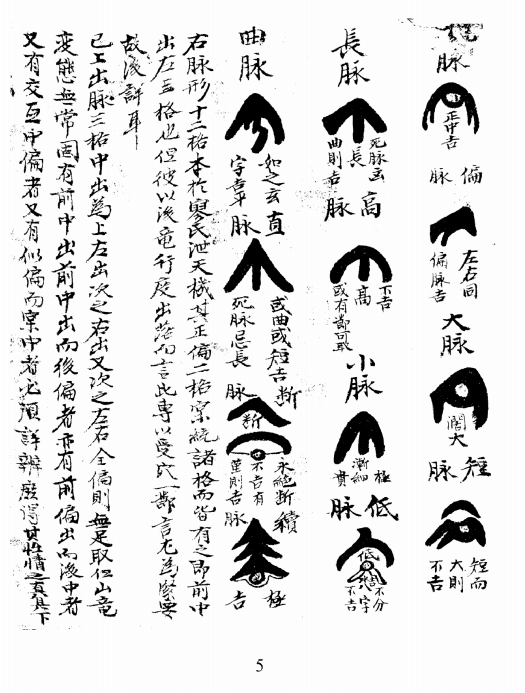 脈
正中吉
偏脈
左右同
偏脈吉
大脈
闊大
短脈
短而
大則
不吉
長脈
死脈
長
曲則吉
高脈
不吉
高
小脈
漸細
極
貴
低脈
低
不分
八字
不吉
曲脈
如之玄
字
直脈
或曲或短吉
死脈忌長
斷脈
斷
永絕斷
不吉有
則吉
續脈
極
吉
右脈形十二格本於廖氏泄天機其正偏二格実統諸格而皆有之即前中
出左右格也但彼以後竜行度出落而言此專以受穴一節言尤為緊要
故後詳耳
已上出脈三格中出為上左出次之右出又次之左右全偏則無足取但山竜
変態無常固有前中出前中出而後偏者亦有前偏出而後中者
又有交互中偏者又有似偏而実中者尤須詳辨庶得其性情之真具下
5